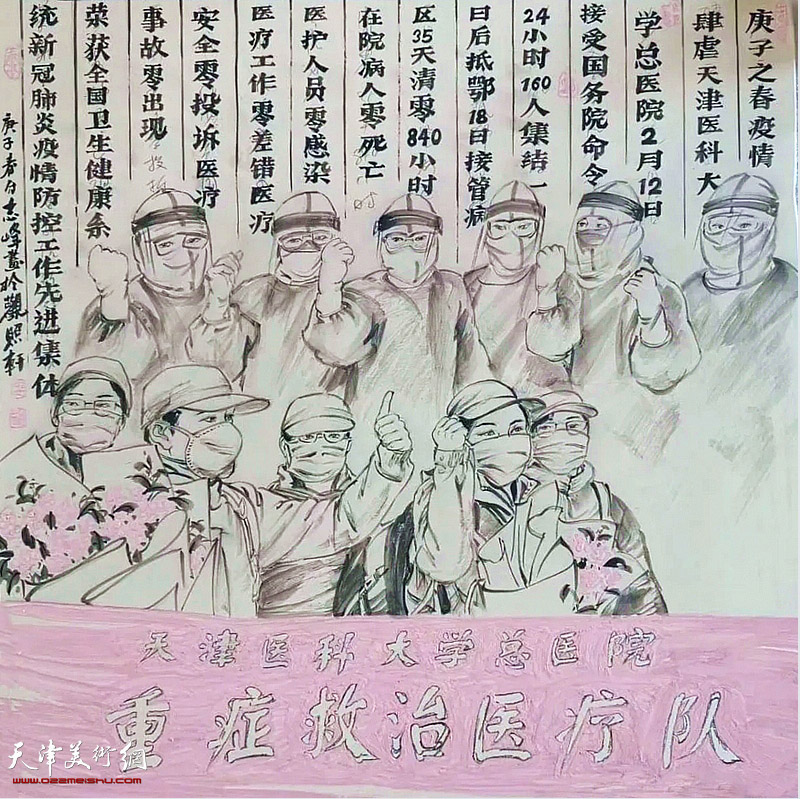 庚子之春疫情
肆虐天津医科大
学总医院2月12日
接受国务院命令
24小时160人集结一
日后抵鄂18日接管病
区35天清零840小时
在院病人零死亡
医护人员零感染
医疗工作零差错医疗
安全零投诉医疗
事故零出现
荣获全国卫生健康系
统新冠肺炎疫情防控工作先进集体
庚子春白志峰画於观照轩
天津医科大学总医院
重症救治医疗队
天津美術網
www.022meishu.com